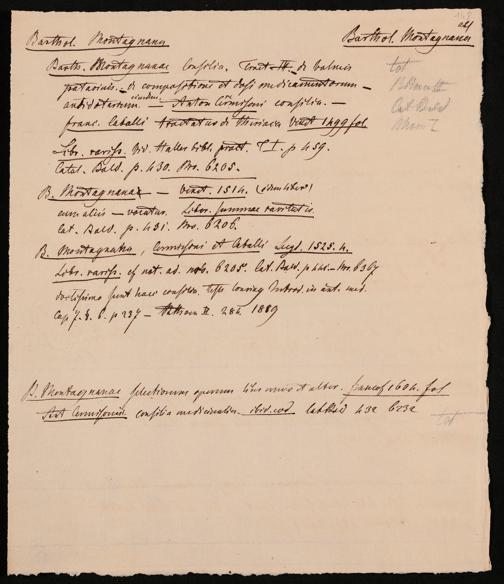 Barthol. Montagnana Barthol. Montagnana
Barth. Montagnanae Consilia. Tract. de balneis
patavinis. – de compositione et dosi medicamentorum –
antidotarium eiusdem – Anton Cermisoni consilia. –
franc. Caballi tractatus de theriaca Venet. 1499 fol
Libr. rariss. vid. Haller bibl. pract. T I. p 459.
Catal. Bald. p. 430. Nro. 6205.
B. Montagnana – Venet. 1514. (idem liber)
cum aliis – Libr. summae raritatis.
Cat. Bald. p. 431. Nro. 6206.
B. Montagnana, Cermisoni et Caballi Lugd. 1525. 4.
Libr. rariss. cf not. ad. nob. 6205. Cat. Bald. p. Nro. 6307
doctissima sunt haec consilia teste Conring Introd. in univ. med.
Cap p 237 – 286. 1889
B. Montagnanae selectiorum operum liber unus et alter. francof 1604. fol
Ant Cermisoni consilia medicinalia. ibid. eod. Cat Bald 432 6232
tot